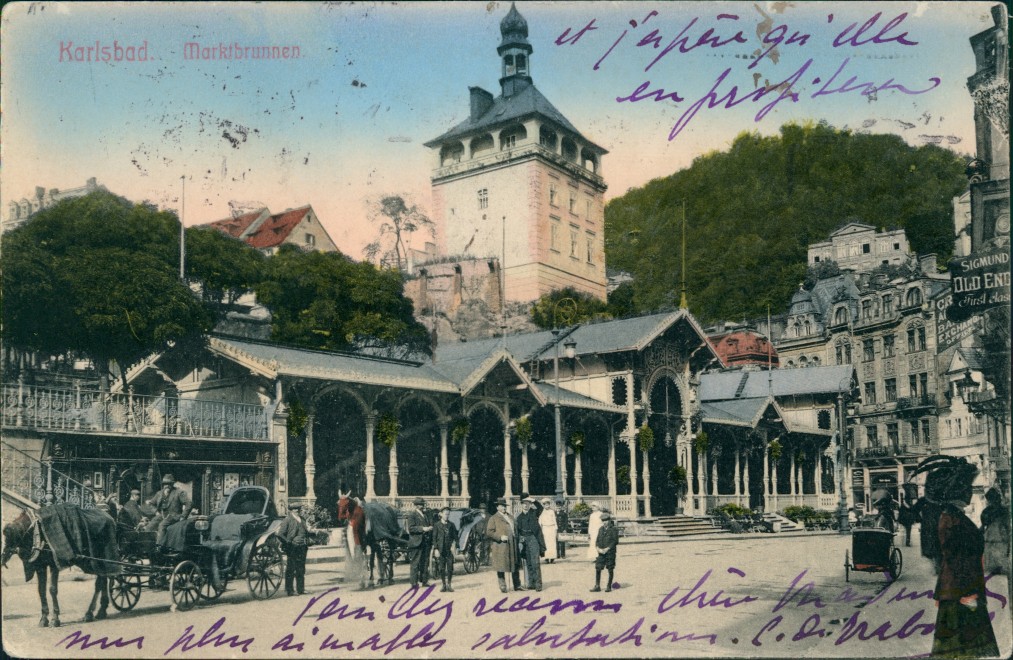 Karlsbad. Marktbrunnen
et j'espère qu'elle
en profitera
SIGMUND
OLD ENG
First class
Veuillez recevoir chère Madame
mes plus aimables salutations.